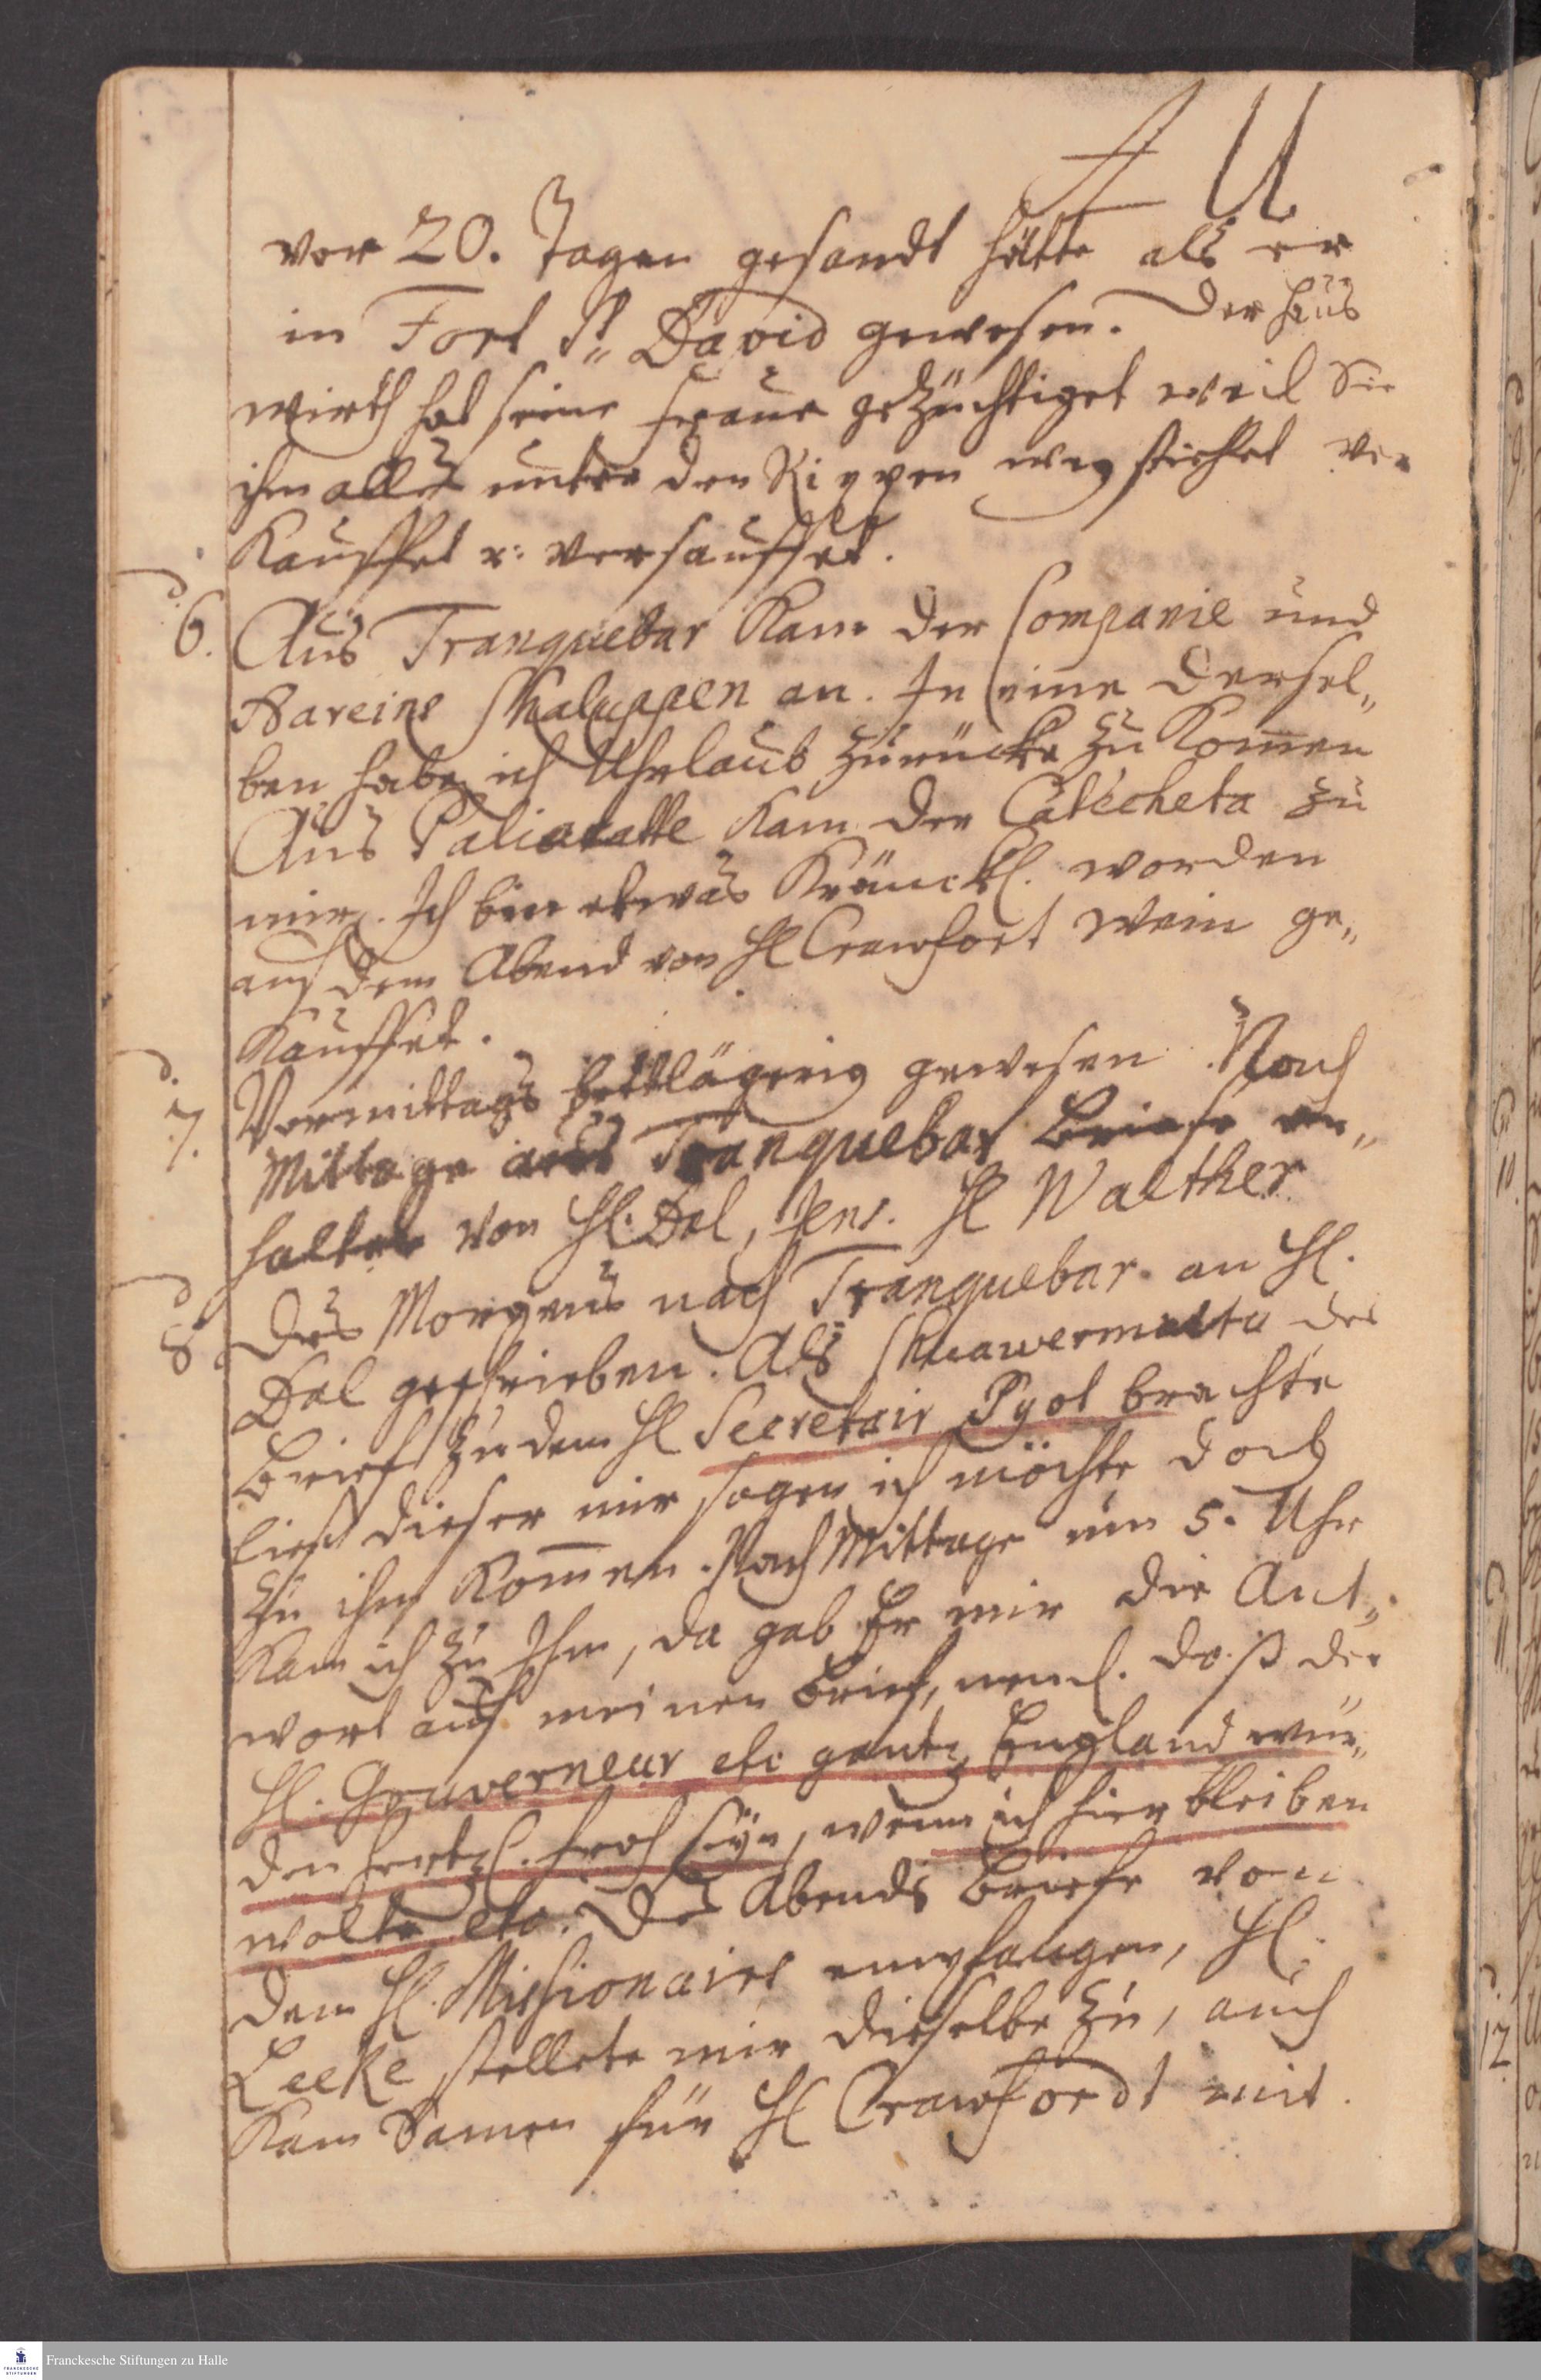 vor 20. Tagen gesandt hätte als er
in Fort St„ David gewesen. Der Haus
wirth hat seine Fraue gezüchtiget weil Sie
ihm alles unter den Rippen weg stiehlet ver
kauffet u: versauffet.
d. 6. Aus Tranquebar kam der Companie und
Bareins Shaluppen an. In eine dersel„
ben habe ich Uhrlaub zurücke zu kommen
Aus Paliacatte kam der Catecheta zu
mir. Ich bin etwas kränckl. worden
auf dem Abend von Hl Crawfort Wein ge„
kauffet.
d. 7. Vormittags bettlägerig gewesen. Nach
Mittage aus Tranquebar Briefe er„
halten von Hl. Dal, Jens. Hl Walther
d 8. Des Morgens nach Tranquebar an Hl.
Dal geschrieben. Als den
Brief zu dem Hl Secretair Pyot brachte
ließ dieser mir sagen ich möchte doch
zu ihm kommen. Nach Mittage um 5. Uhr
kam ich zu Ihm, da gab Er mir die Ant„
wort auf meinen Brief, neml. daß der
Hl. Gouverneur etc gantz England wür„
den hertzl. froh seyn, wenn ich hier bleiben
wolte etc. Des Abends Briefe von
dem Hl. Missionairs empfangen, Hl.
Leeke stellete mir dieselbe zu, auch
kam Samen für Hl Crawfordt mit.
Franckesche Stiftungen zu Halle